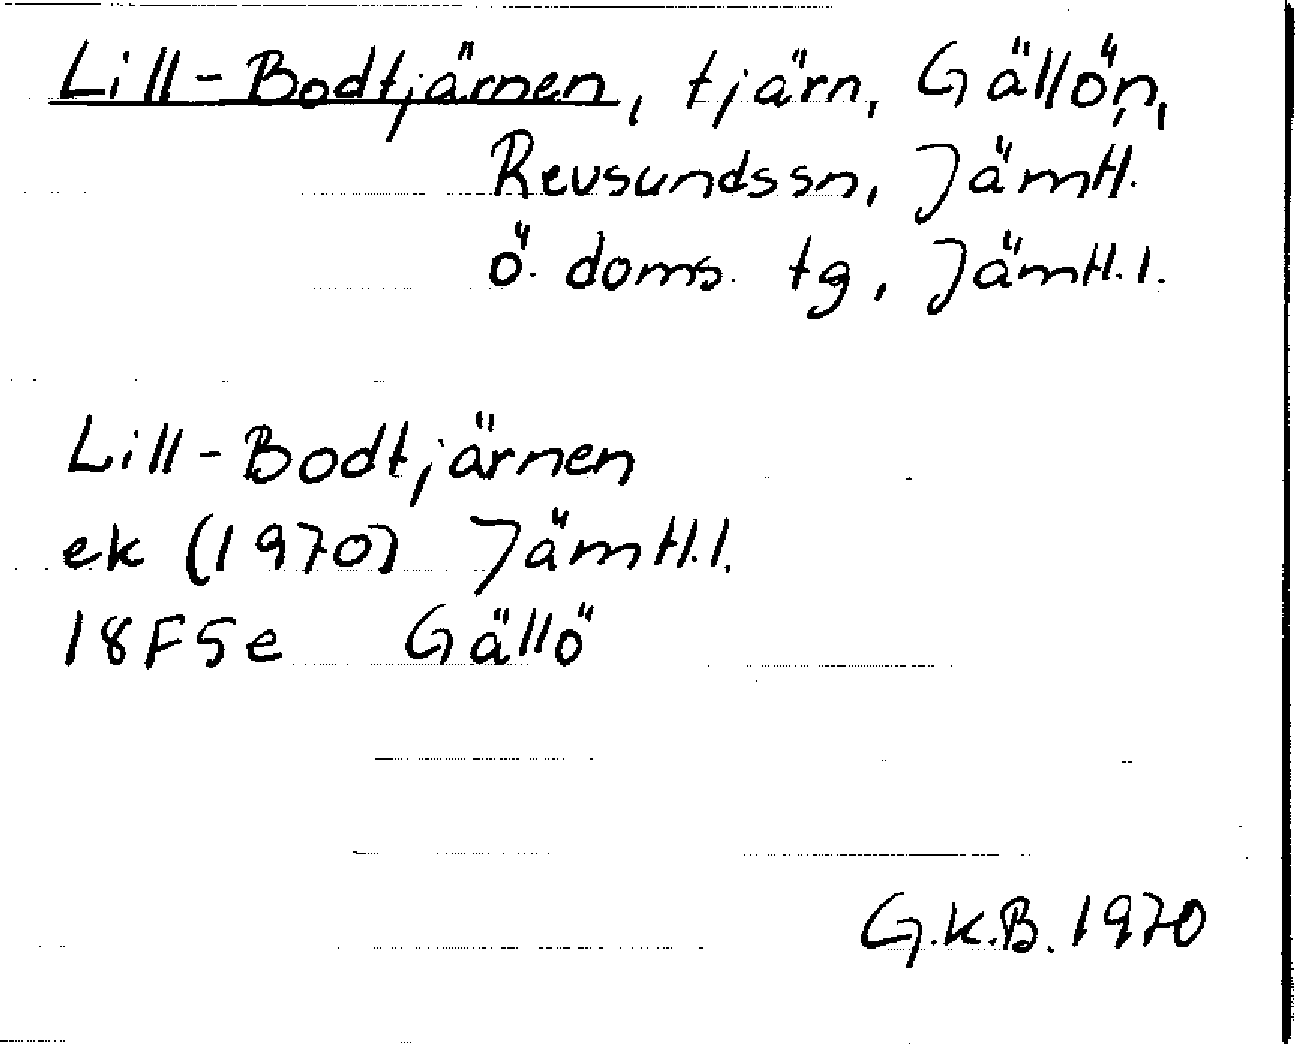 Lill-Bodtjärnen, tjärn, Gällön,
Revsundssn, Jämtl.
ö. doms. tg, Jämtl. l.
Lill-Bodtjärnen
ek (1970) Jämtl.l.
18F5e Gällö
G.K.B. 1970